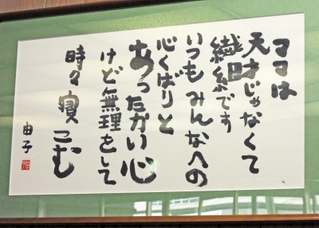 ママは
天才じゃなくて
繊細です
いつもみんなへの
心くばりと
あったかい心
けど無理をして
時々寝こむ
由子